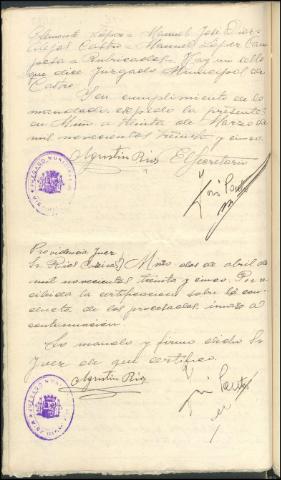 Clemente López = Manuel José Diaz
Castro = Manuel López Cam
Rubricados = Hay un sello
que dice Juzgado Municipal de
Castro.
En cumplimiento de lo
mandado, expido la presente
en Miño a treinta de Marzo de
mil novecientos treinta y cinco.
Agustin Rios El Secretario
JUZGADO MUNICIPAL
Providencia Juez
Sr. Rios Miño dos de abril de
mil novecientos treinta y cinco. Por re
cibida la certificacion sobre la con
ducta de los procesados, unase a
continuacion.
Lo mando y firmo dicho Sr.
Juez de que certifico.
Agustin Rios
JUZGADO MUNICIPAL